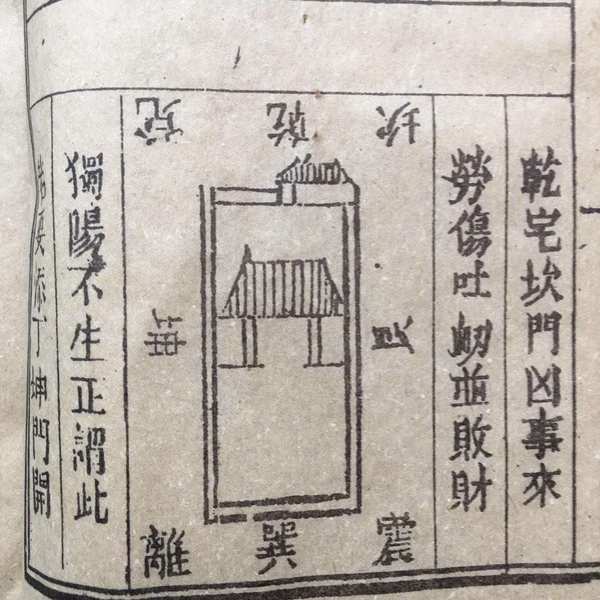 乾宅坎門凶事來
勞傷吐衂並敗財
坎 乾 兌
艮 坤
震 巽 離
獨陽不生正謂此
添丁坤門開